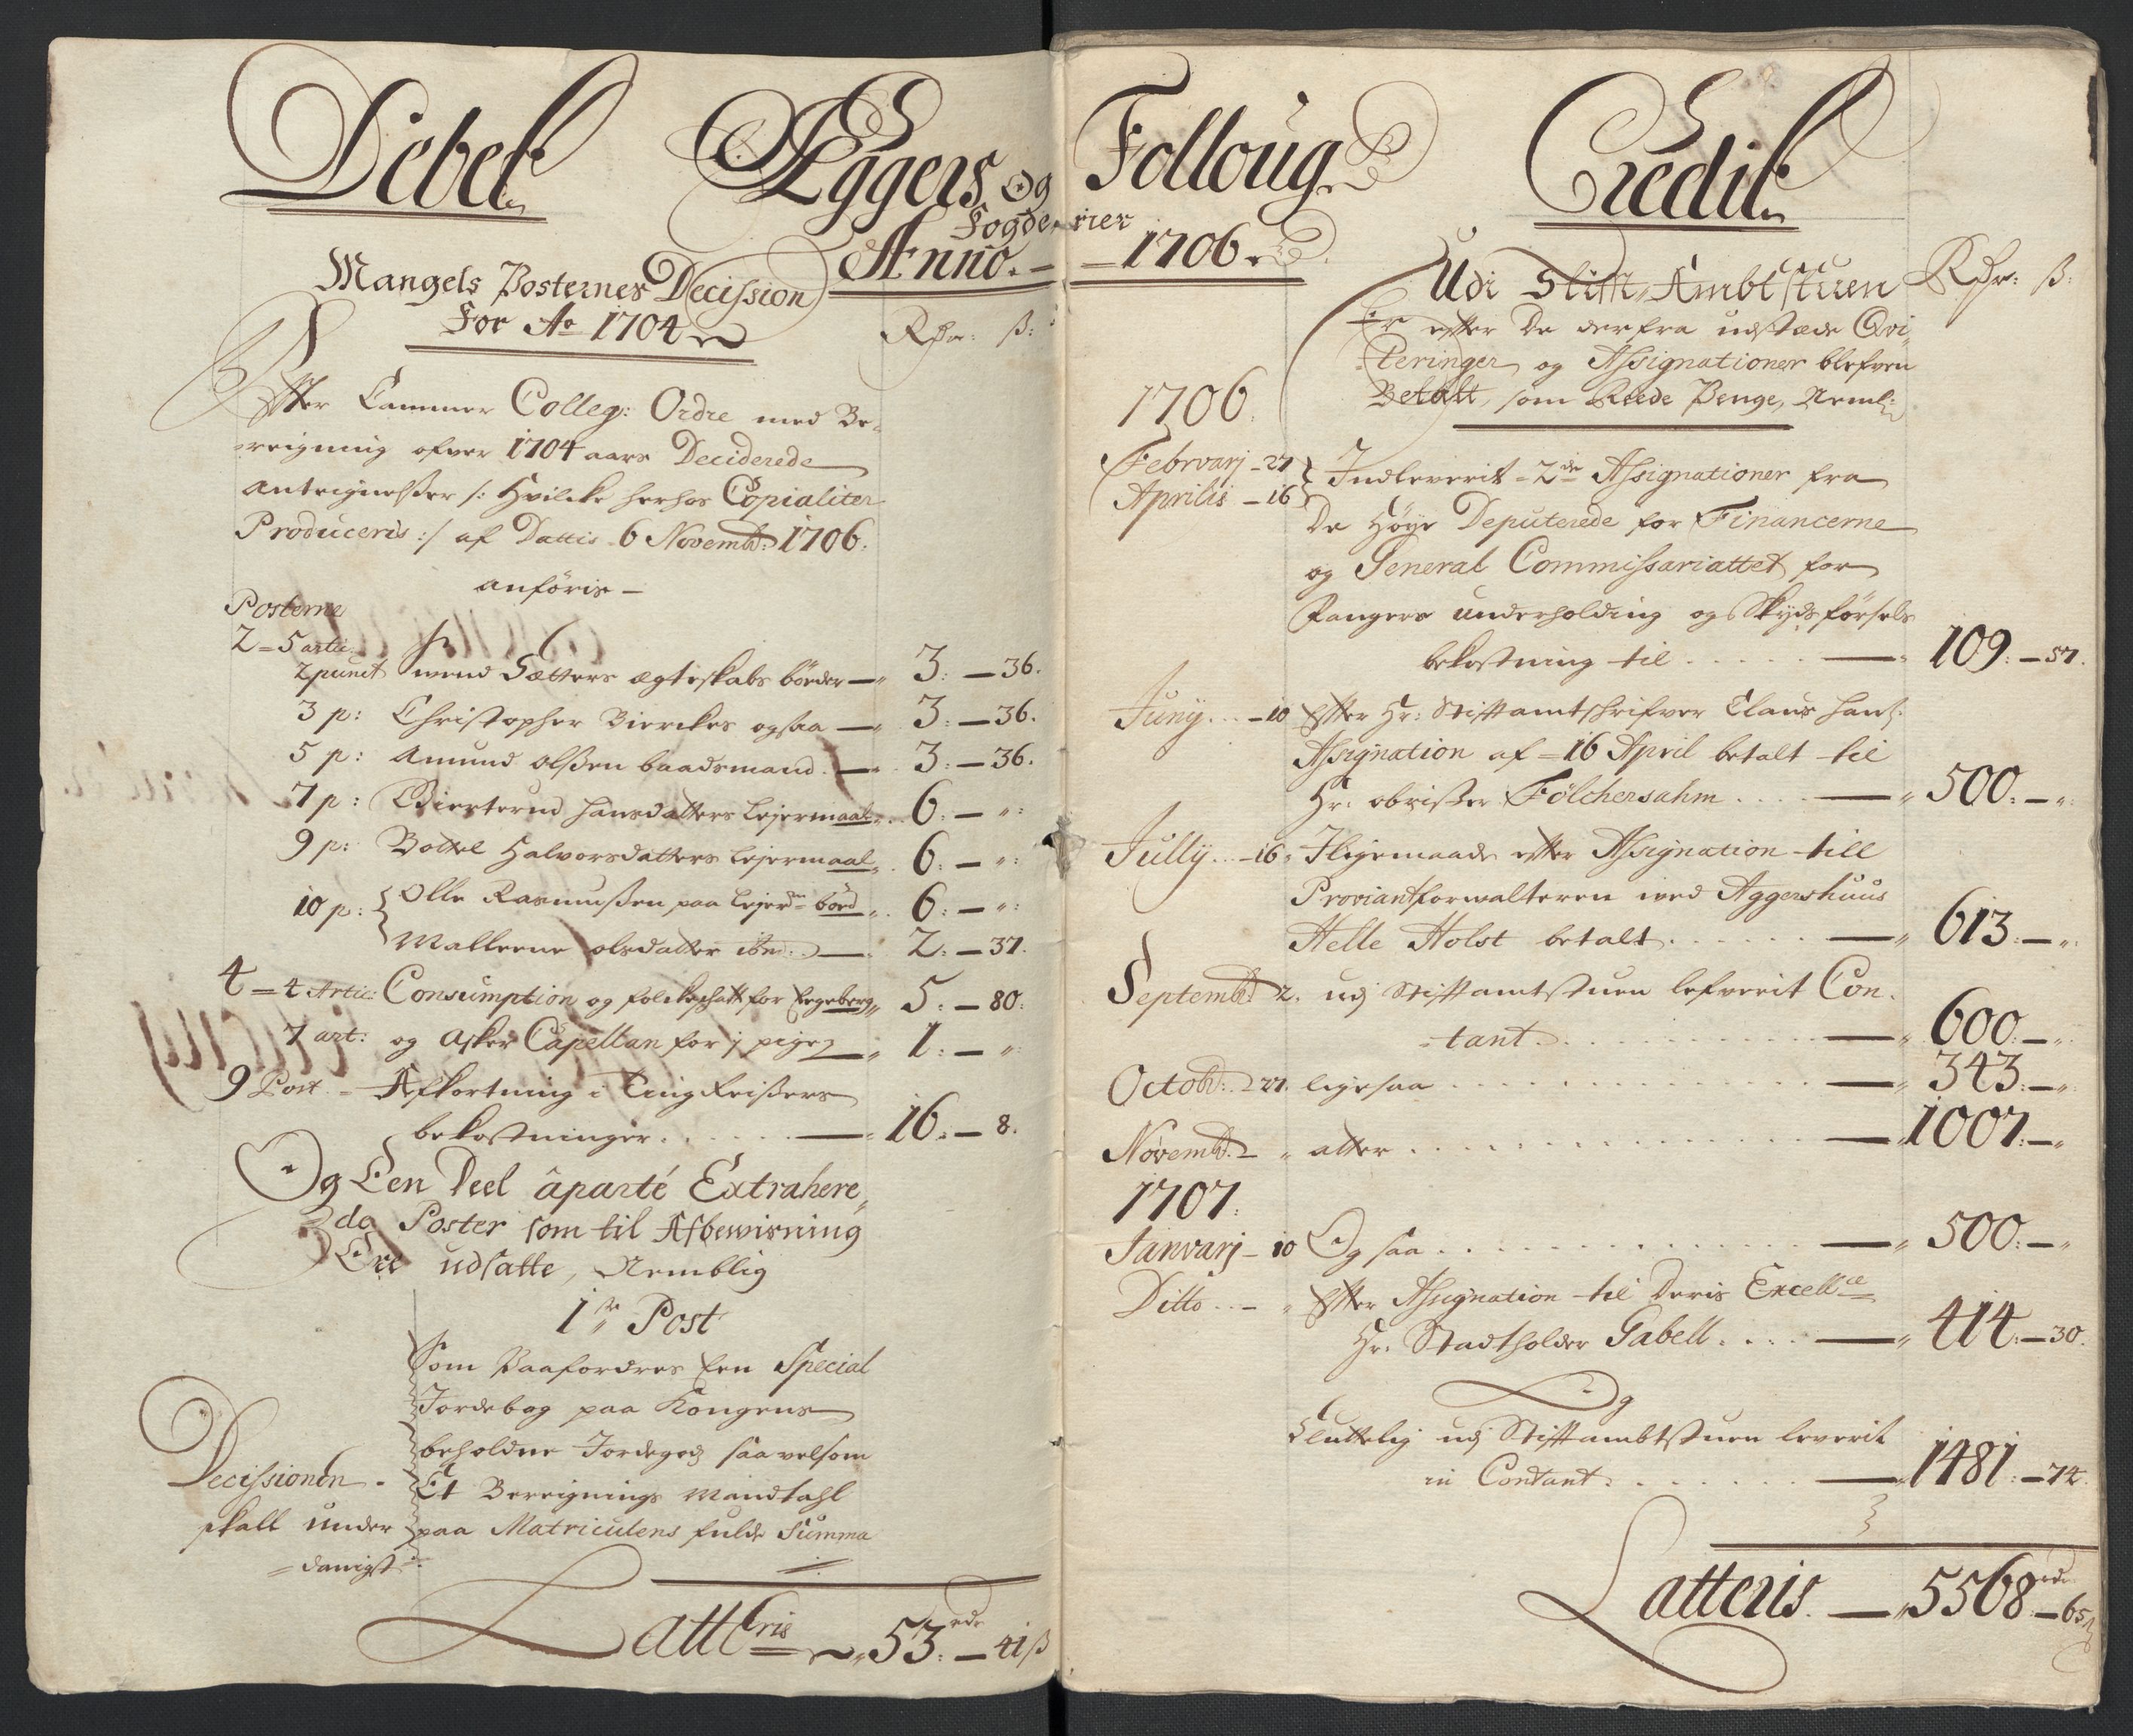 Debet
Eggers og
Fogde
Anno.
Mangels Posternes Decission
For Ao 1704
Rdr: ß:
Effter Cammer Colleg: Ordre med Be-
reigning ofver 1704 aars Deciderede
Anteignelßer /: Hvilcke herhos Copialiter
Produceris :/ af Dattis 6 Novembr: 1706.
anföris -
Posterne
2 = 5 artic
2 punct Sætters ægteskabs böeder — 3: — 36.
3 p: Christopher Bierckes ogsaa — 3: — 36.
5 p: Amund olßen baadsmand — 3: — 36.
7 p: hansdatters Lejermaal 6: — ":
9 p: Bottel Halvorsdatters Lejermaal 6: — ":
10 p: Olle Rasmußen paa Lejerms böd 6: — ":
Mallerne olsdatter — 2: — 37.
4 = 4 Artic: Consumption og folckeskatt for Legeberg 5: — 80:
7 art: og Asker Capellan for j pige — 1: — ":
9 Post = Afkortning i Ting Reißers
bekostninger — 16: — 8.
Og Een Deel àparté Extrahere
de Poster som til Afbewisning
Ere udsatte, Nemblig
1ste Post
Som Paafordres Een Special
Jordebog paa Kongens
beholdne Jordegods saavelsom
Decissionen - Et Bereignings Mandtahl
skall under paa Matriculens fulde Summa
= danigst
Latteris 53 rdr — 41 ß
Folloug
rier
1706
Credit
Udi Stifft Ambtstuen Rdr: ß:
Er effter De derfra udstæde Qvi-
teringer og Assignationer blefven
1706. Betalt, som Reede Penge, Neml:
Febrvarj - 27 Indleverit = 2de Assignationer fra
Aprilis - 16
De Höye Deputerede for Financerne
og General Commissariattet for
Fangers underholding og Skydsförsels
bekostning til — 109: — 57.
Junij - 10 Effter Hr: Stifftamtskrifver Claus Hans:
Assignation af = 16 April betalt til
Hr: obrister Fölchersahm — 500: — ":
Jullij - 16 Ligemaade effter Assignation till
Proviantforwalteren ved Aggershuus
Helle Holst betalt — 613: — ":
Septembr 2. udj Stifftamtstuen lefverit Con-
tant — 600: — ":
Octobr: 27. ligesaa — 343: — ":
Novembr - " atter — 1007: — "
1707:
Janvarj - 10 Og saa — 500: — "
Ditto - " Effter Assignation til Deris Excellce
Hr: Stadtholder Gabell — 414: — 30.
Og
Sluttelig udj Stifftambtstuen leverit
in Contant — 1481: — 74.
Latteris — 5568 rdr — 65 ß